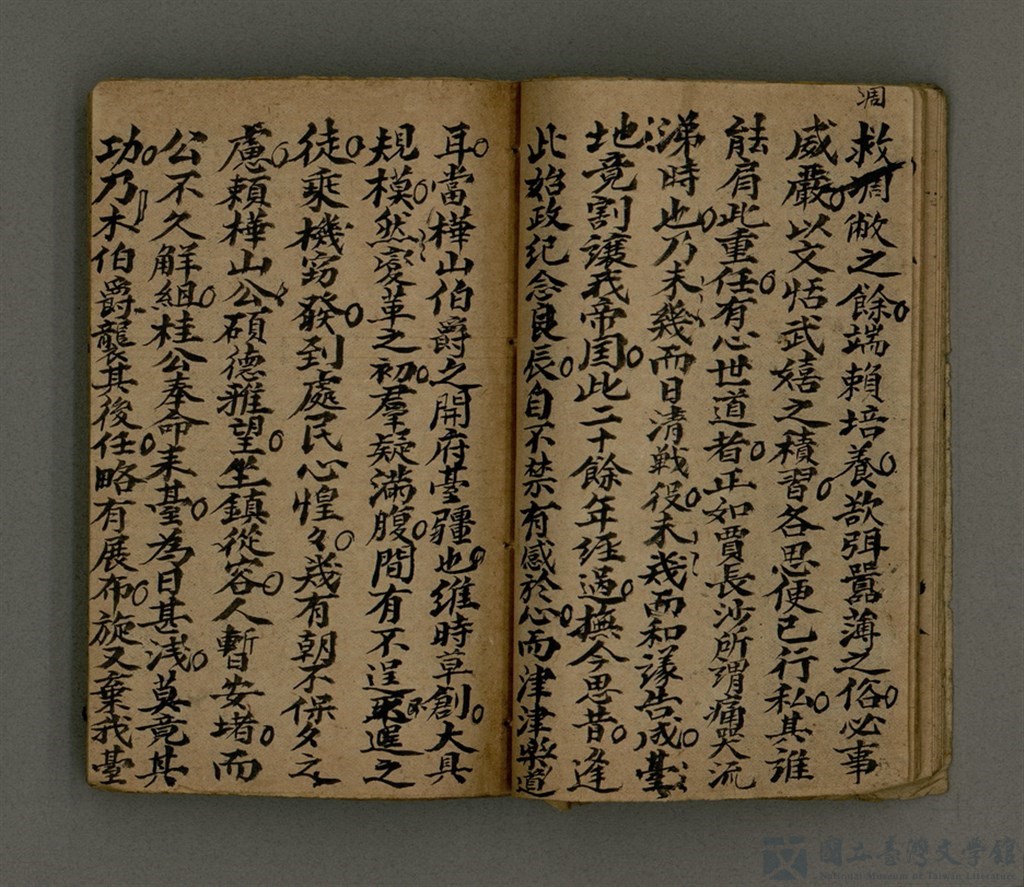 凋
救凋敝之餘端賴培養欲弭囂薄之俗必事
威嚴以文恬武嬉之積習各思便己行私其誰
能肩此重任有心世道者正如賈長沙所謂痛哭流
涕時也乃未幾而日清戰役未幾而和議告成臺
地竟割讓我帝国此二十餘年經過撫今思昔逢
此始政紀念良辰自不禁有感於心而津津樂道
耳當樺山伯爵之開府臺疆也維時草創大具
規模然変革之初羣疑滿腹間有不逞之
徒乘機窃發到處民心惶々幾有朝不保夕之
慮賴樺山公碩德雅望坐鎮從容人暫安堵而
公不久解組桂公奉命来臺為日甚浅莫竟其
功乃木伯爵襲其後任略有展布旋又棄我臺
國立臺灣文學館
National Museum of Taiwan Literature